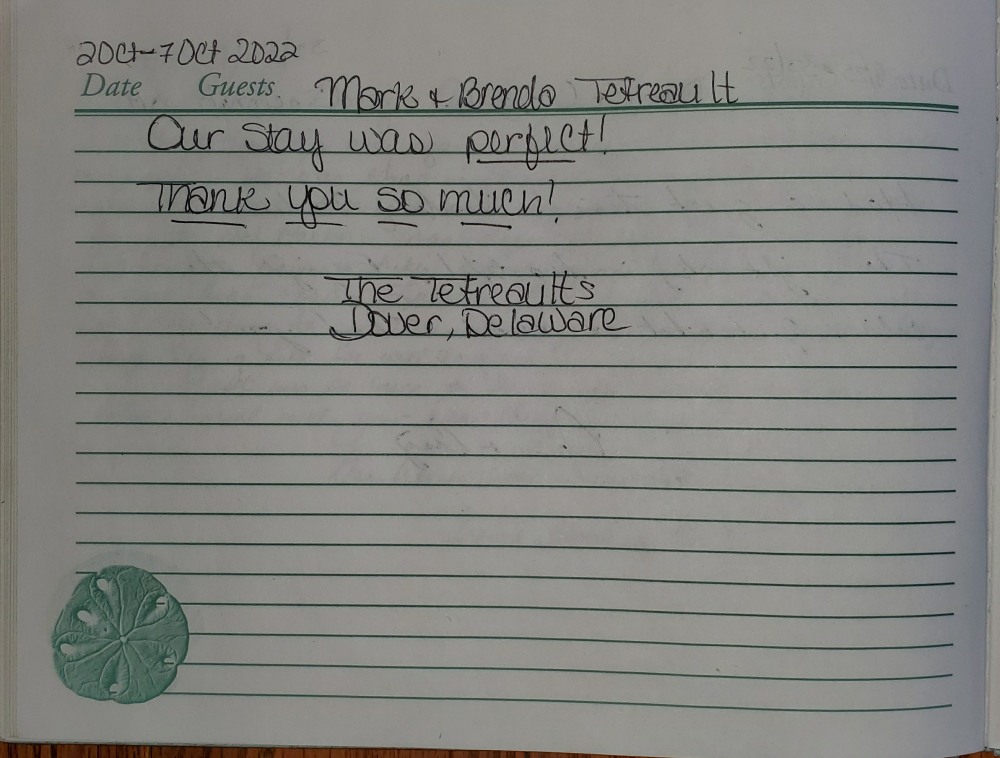 2 Oct - 7 Oct 2022
Date Guests Mark & Brenda Tetreault
Our stay was perfect!
Thank you so much!
The Tetreaults
Dover, Delaware